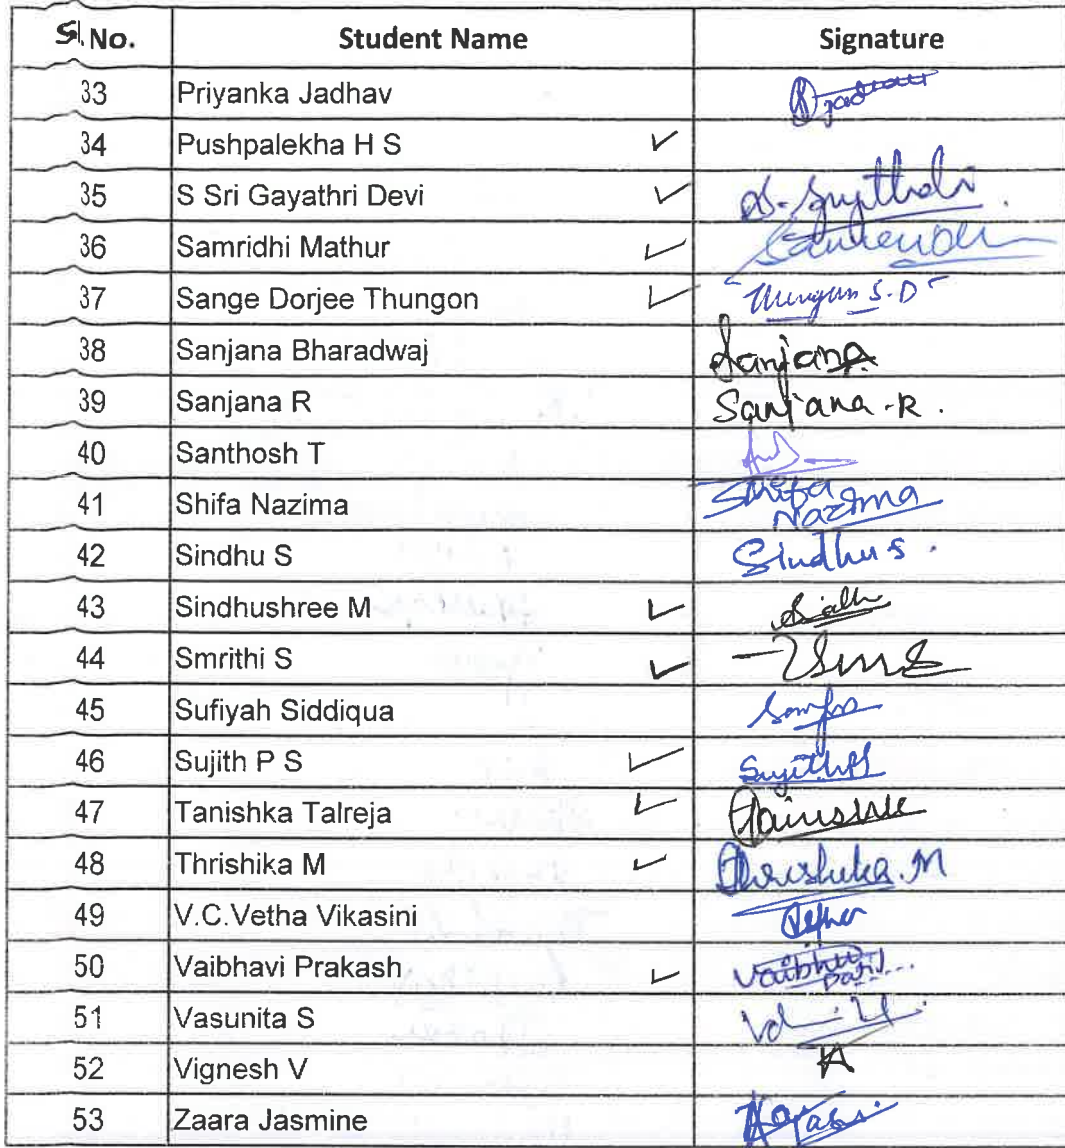 Sl. No. Student Name Signature
33 Priyanka Jadhav
34 Pushpalekha H S ✓
35 S Sri Gayathri Devi ✓
36 Samridhi Mathur ✓
37 Sange Dorjee Thungon ✓ S.D
38 Sanjana Bharadwaj Sanjana
39 Sanjana R Sanjana.R.
40 Santhosh T
41 Shifa Nazima Shifa Nazima
42 Sindhu S Sindhu S.
43 Sindhushree M ✓
44 Smrithi S ✓
45 Sufiyah Siddiqua
46 Sujith P S ✓ SujithPS
47 Tanishka Talreja ✓
48 Thrishika M ✓ Thrishika.M
49 V.C.Vetha Vikasini
50 Vaibhavi Prakash ✓
51 Vasunita S
52 Vignesh V
53 Zaara Jasmine